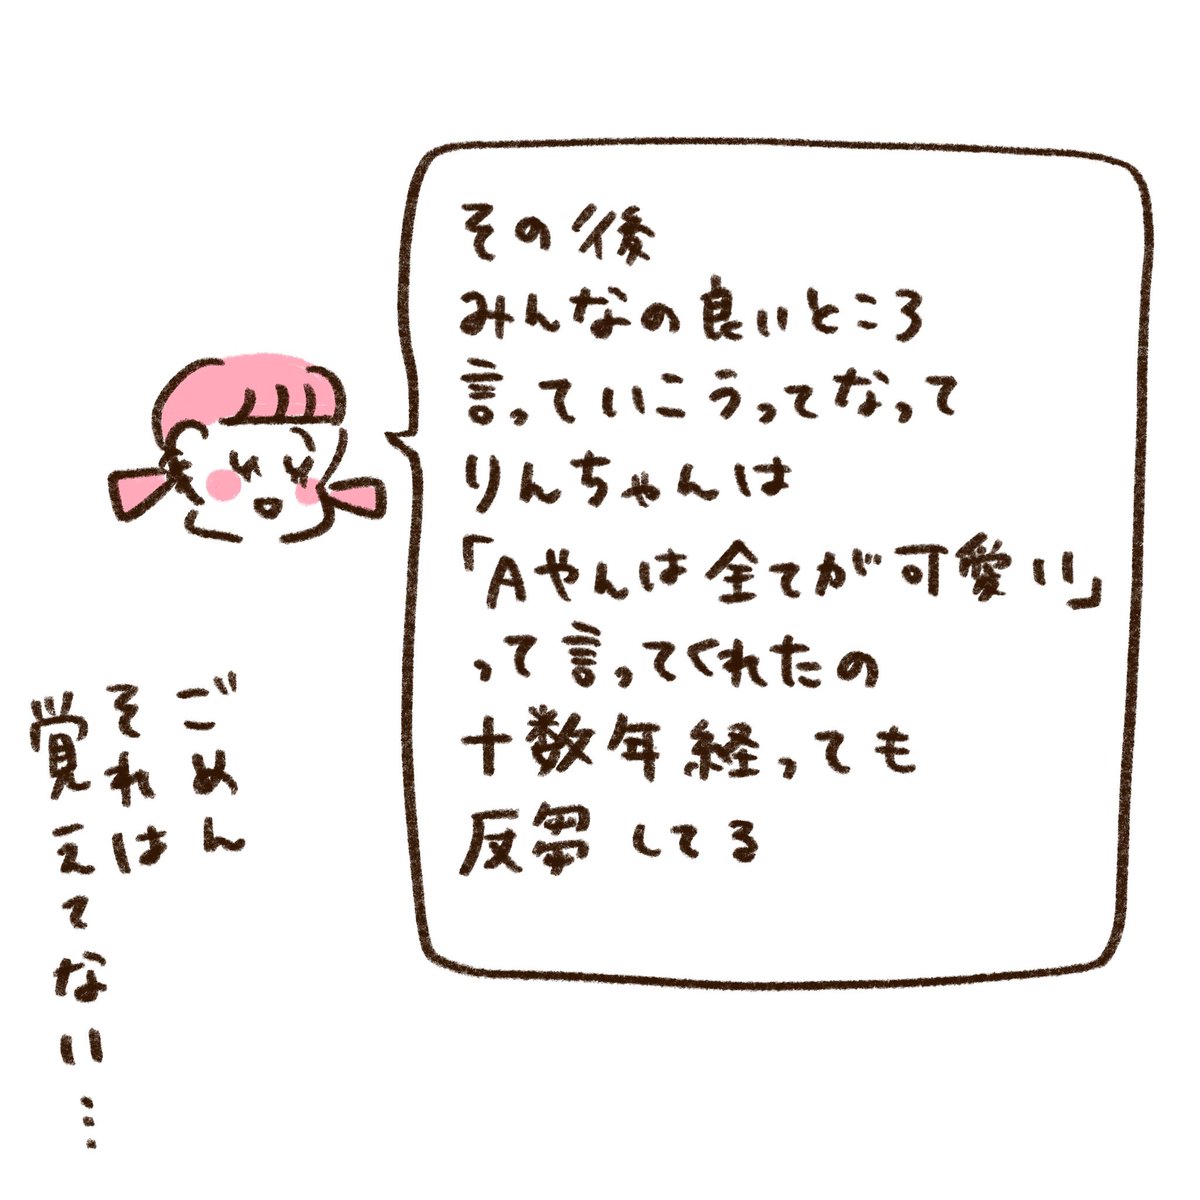 その後
みんなの良いところ
言っていこうってなって
りんちゃんは
「Aやんは全てが可愛い」
って言ってくれたの
十数年経っても
反芻してる
ごめん
それは
覚えてない…